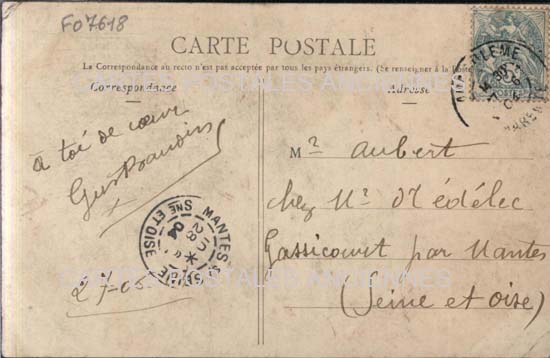 F07618
CARTE POSTALE
La Correspondance au recto n'est pas acceptée par tous les pays étrangers. (Se renseigner à la Poste
Correspondance
Adresse
à toi de cœur
Gus Baudoin
27-05
MANTES S SEINE
SNE ET OISE
28
04
Mr Aubert
chez Mr
Gassicourt par Mantes
(Seine et Oise)
CARTES POSTALES ANCIENNES
CARTES POSTALES ANCIENNES